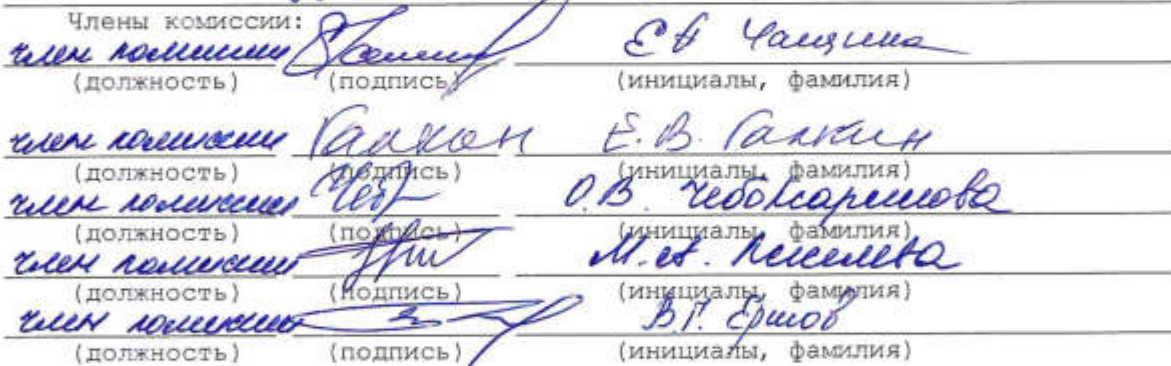 Члены комиссии:
член комиссии Е.А. Чащина
(должность) (подпись) (инициалы, фамилия)
член комиссии Галкин Е.В. Галкин
(должность) (подпись) (инициалы, фамилия)
член комиссии Чеб О.В. Чебоксаринова
(должность) (подпись) (инициалы, фамилия)
член комиссии М.А. Киселева
(должность) (подпись) (инициалы, фамилия)
член комиссии В.Г. Ершов
(должность) (подпись) (инициалы, фамилия)